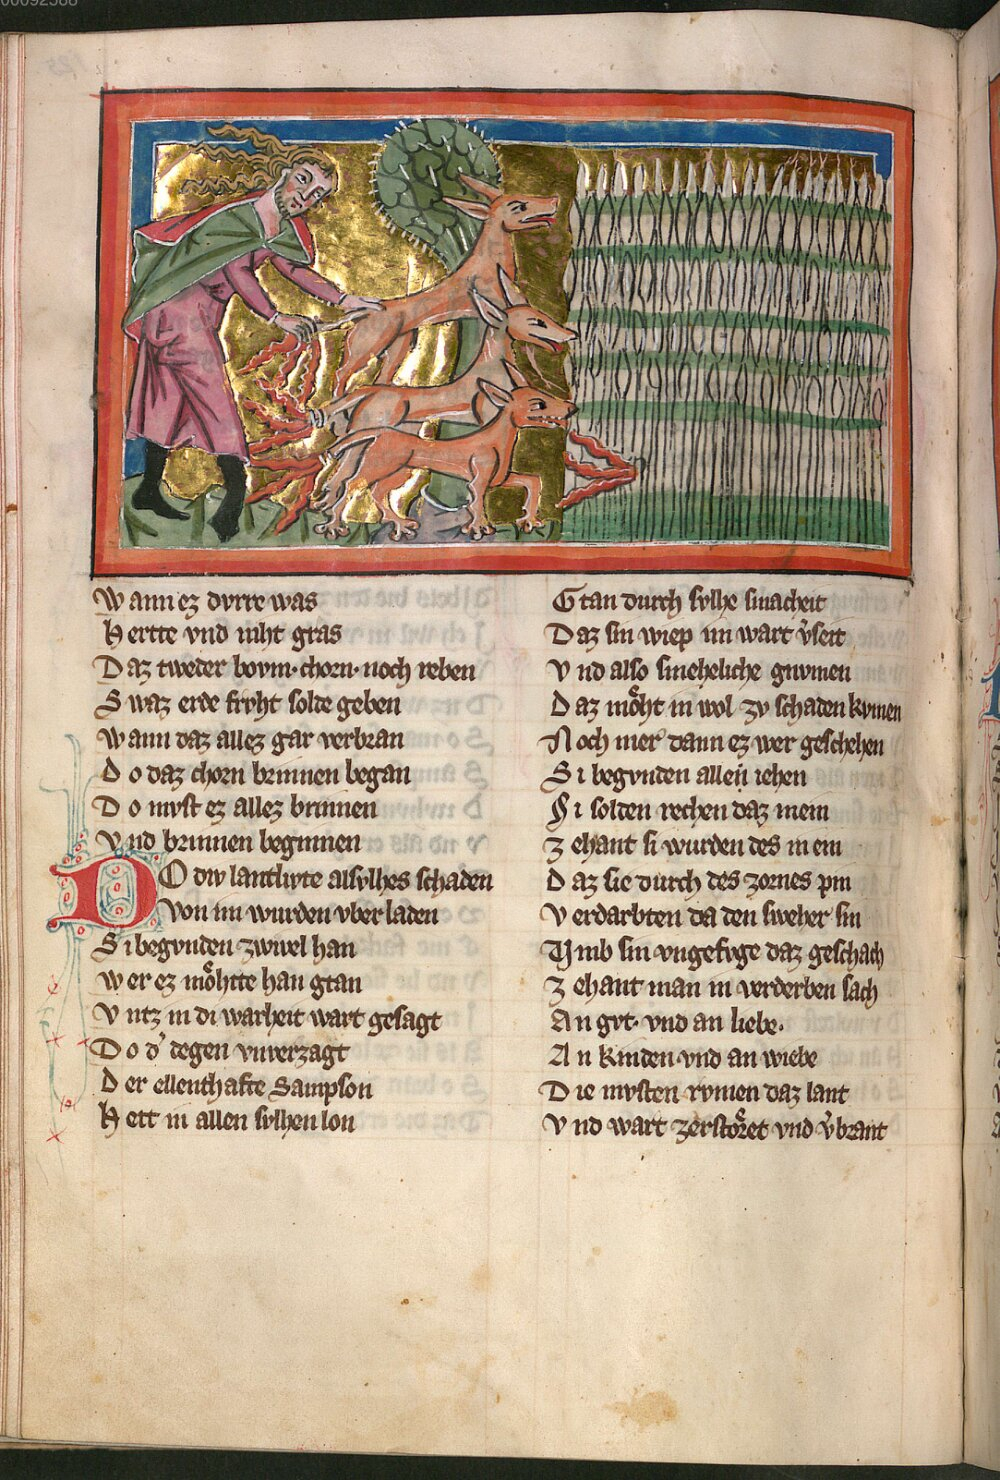 00092568
Wann ez dvrre was
Hertte vnd niht gras
Daz tweder bovm · chorn · noch reben
Swaz erde frvht solde geben
Wann daz allez gar verbran
Do daz chorn brinnen began
Do mvst ez allez brinnen
Vnd brinnen beginnen
DO div lantlivte alsvlhes schaden
Von im wurden vber laden
Si begvnden zwivel han
Wer ez moͤhtte han gtan
Vntz in di warheit wart gesagt
Do d' degen vnverzagt
Der ellenthafte Sampson
Hett in allen svlhen lon
Gtan durch svlhe smacheit
Daz sin wiep im wart v̓seit
Vnd also sineheliche gnvmen
Daz moͤht in wol zv schaden kvmen
Noch mer dann ez wer geschehen
Si begvnden allen iehen
Si solden rechen daz mein
Zehant si wurden des in ein
Daz sie durch des zornes pin
Verdarbten da den sweher sin
Vmb sin vngefvge daz geschach
Zehant man in verderben sach
An gvt · vnd an liebe ·
An kinden vnd an wiebe
Die mvsten rvmen daz lant
Vnd wart zerstoͤret vnd v̓brant